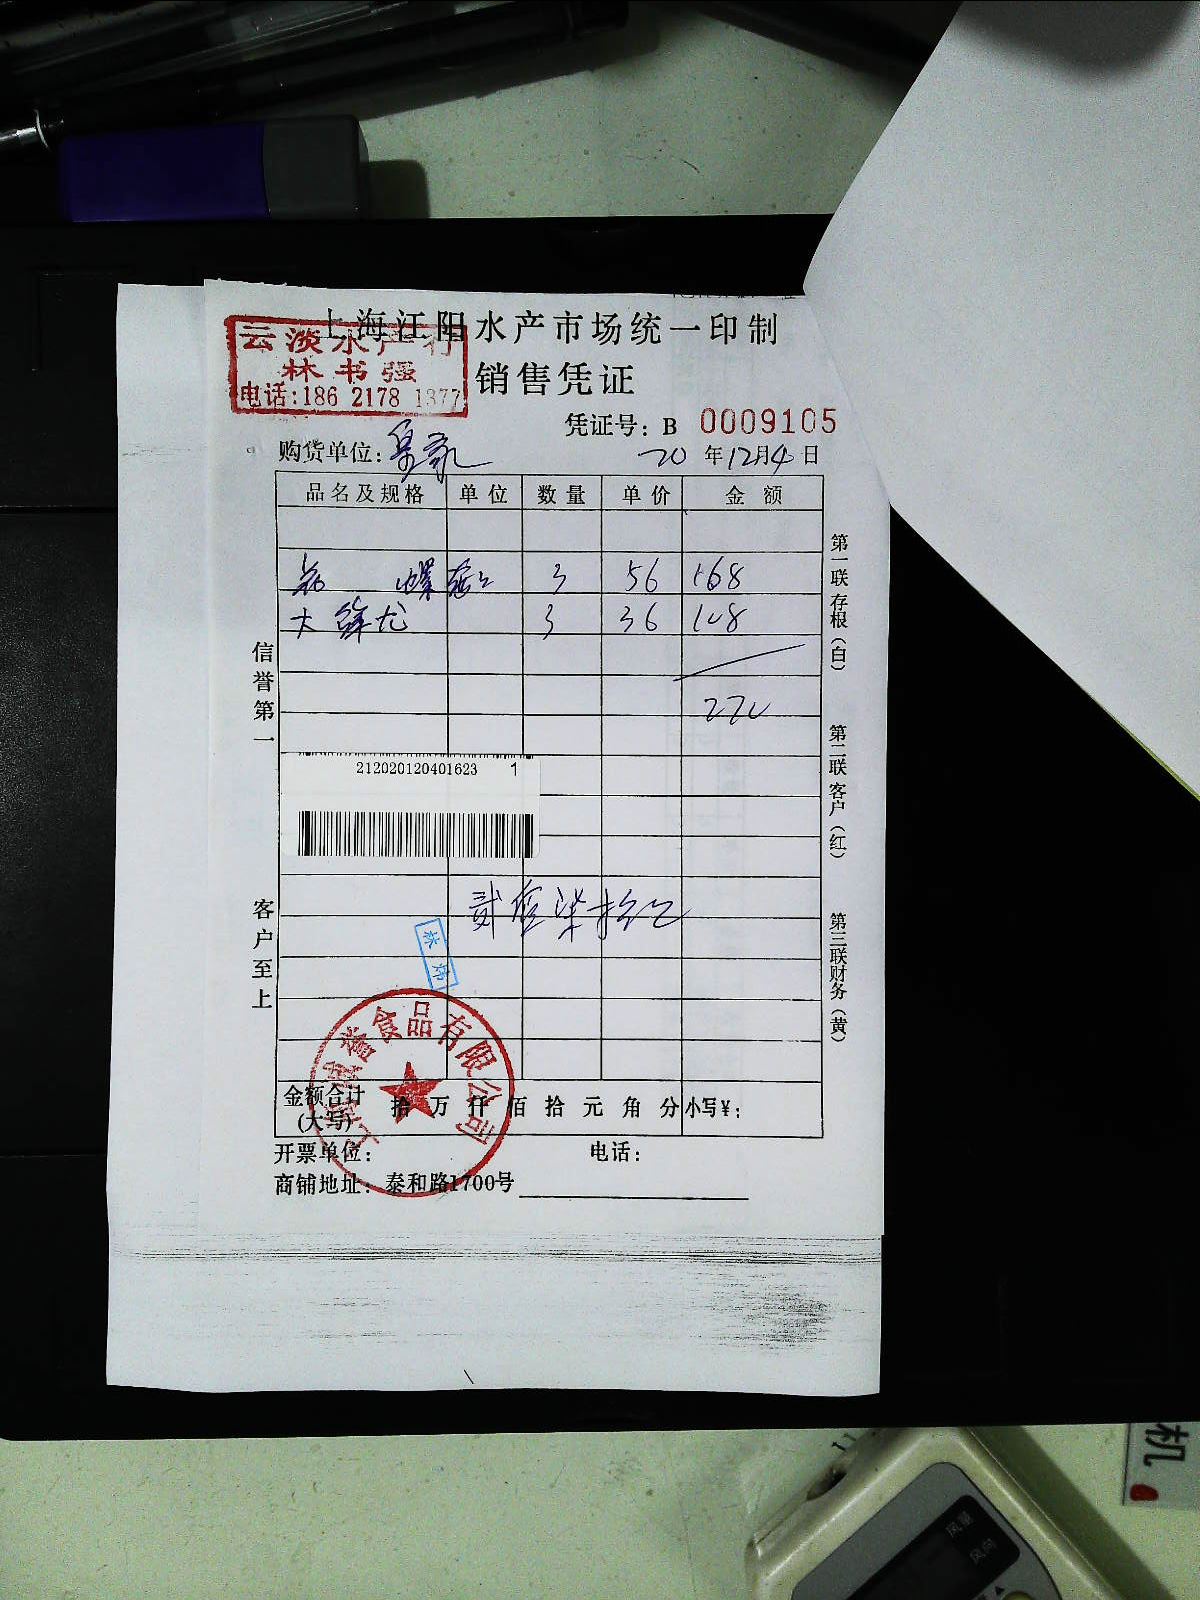 上海江阳水产市场统一印制
云淡水产行
林书强
电话:186 2178 1377
销售凭证
凭证号: B 0009105
购货单位:
20 年 12月 4 日
品名及规格 单位 数量 单价 金额
螺 3 56 168
大 3 36 108
270
信誉第一
客户至上
第一联存根(白)
第二联客户(红)
第三联财务(黄)
212020120401623 1
贰佰柒拾元
林
誉食品有限公司
金额合计(大写) 拾 万 仟 佰 拾 元 角 分 小写¥:
开票单位: 电话:
商铺地址: 泰和路1700号
机
风量
风向